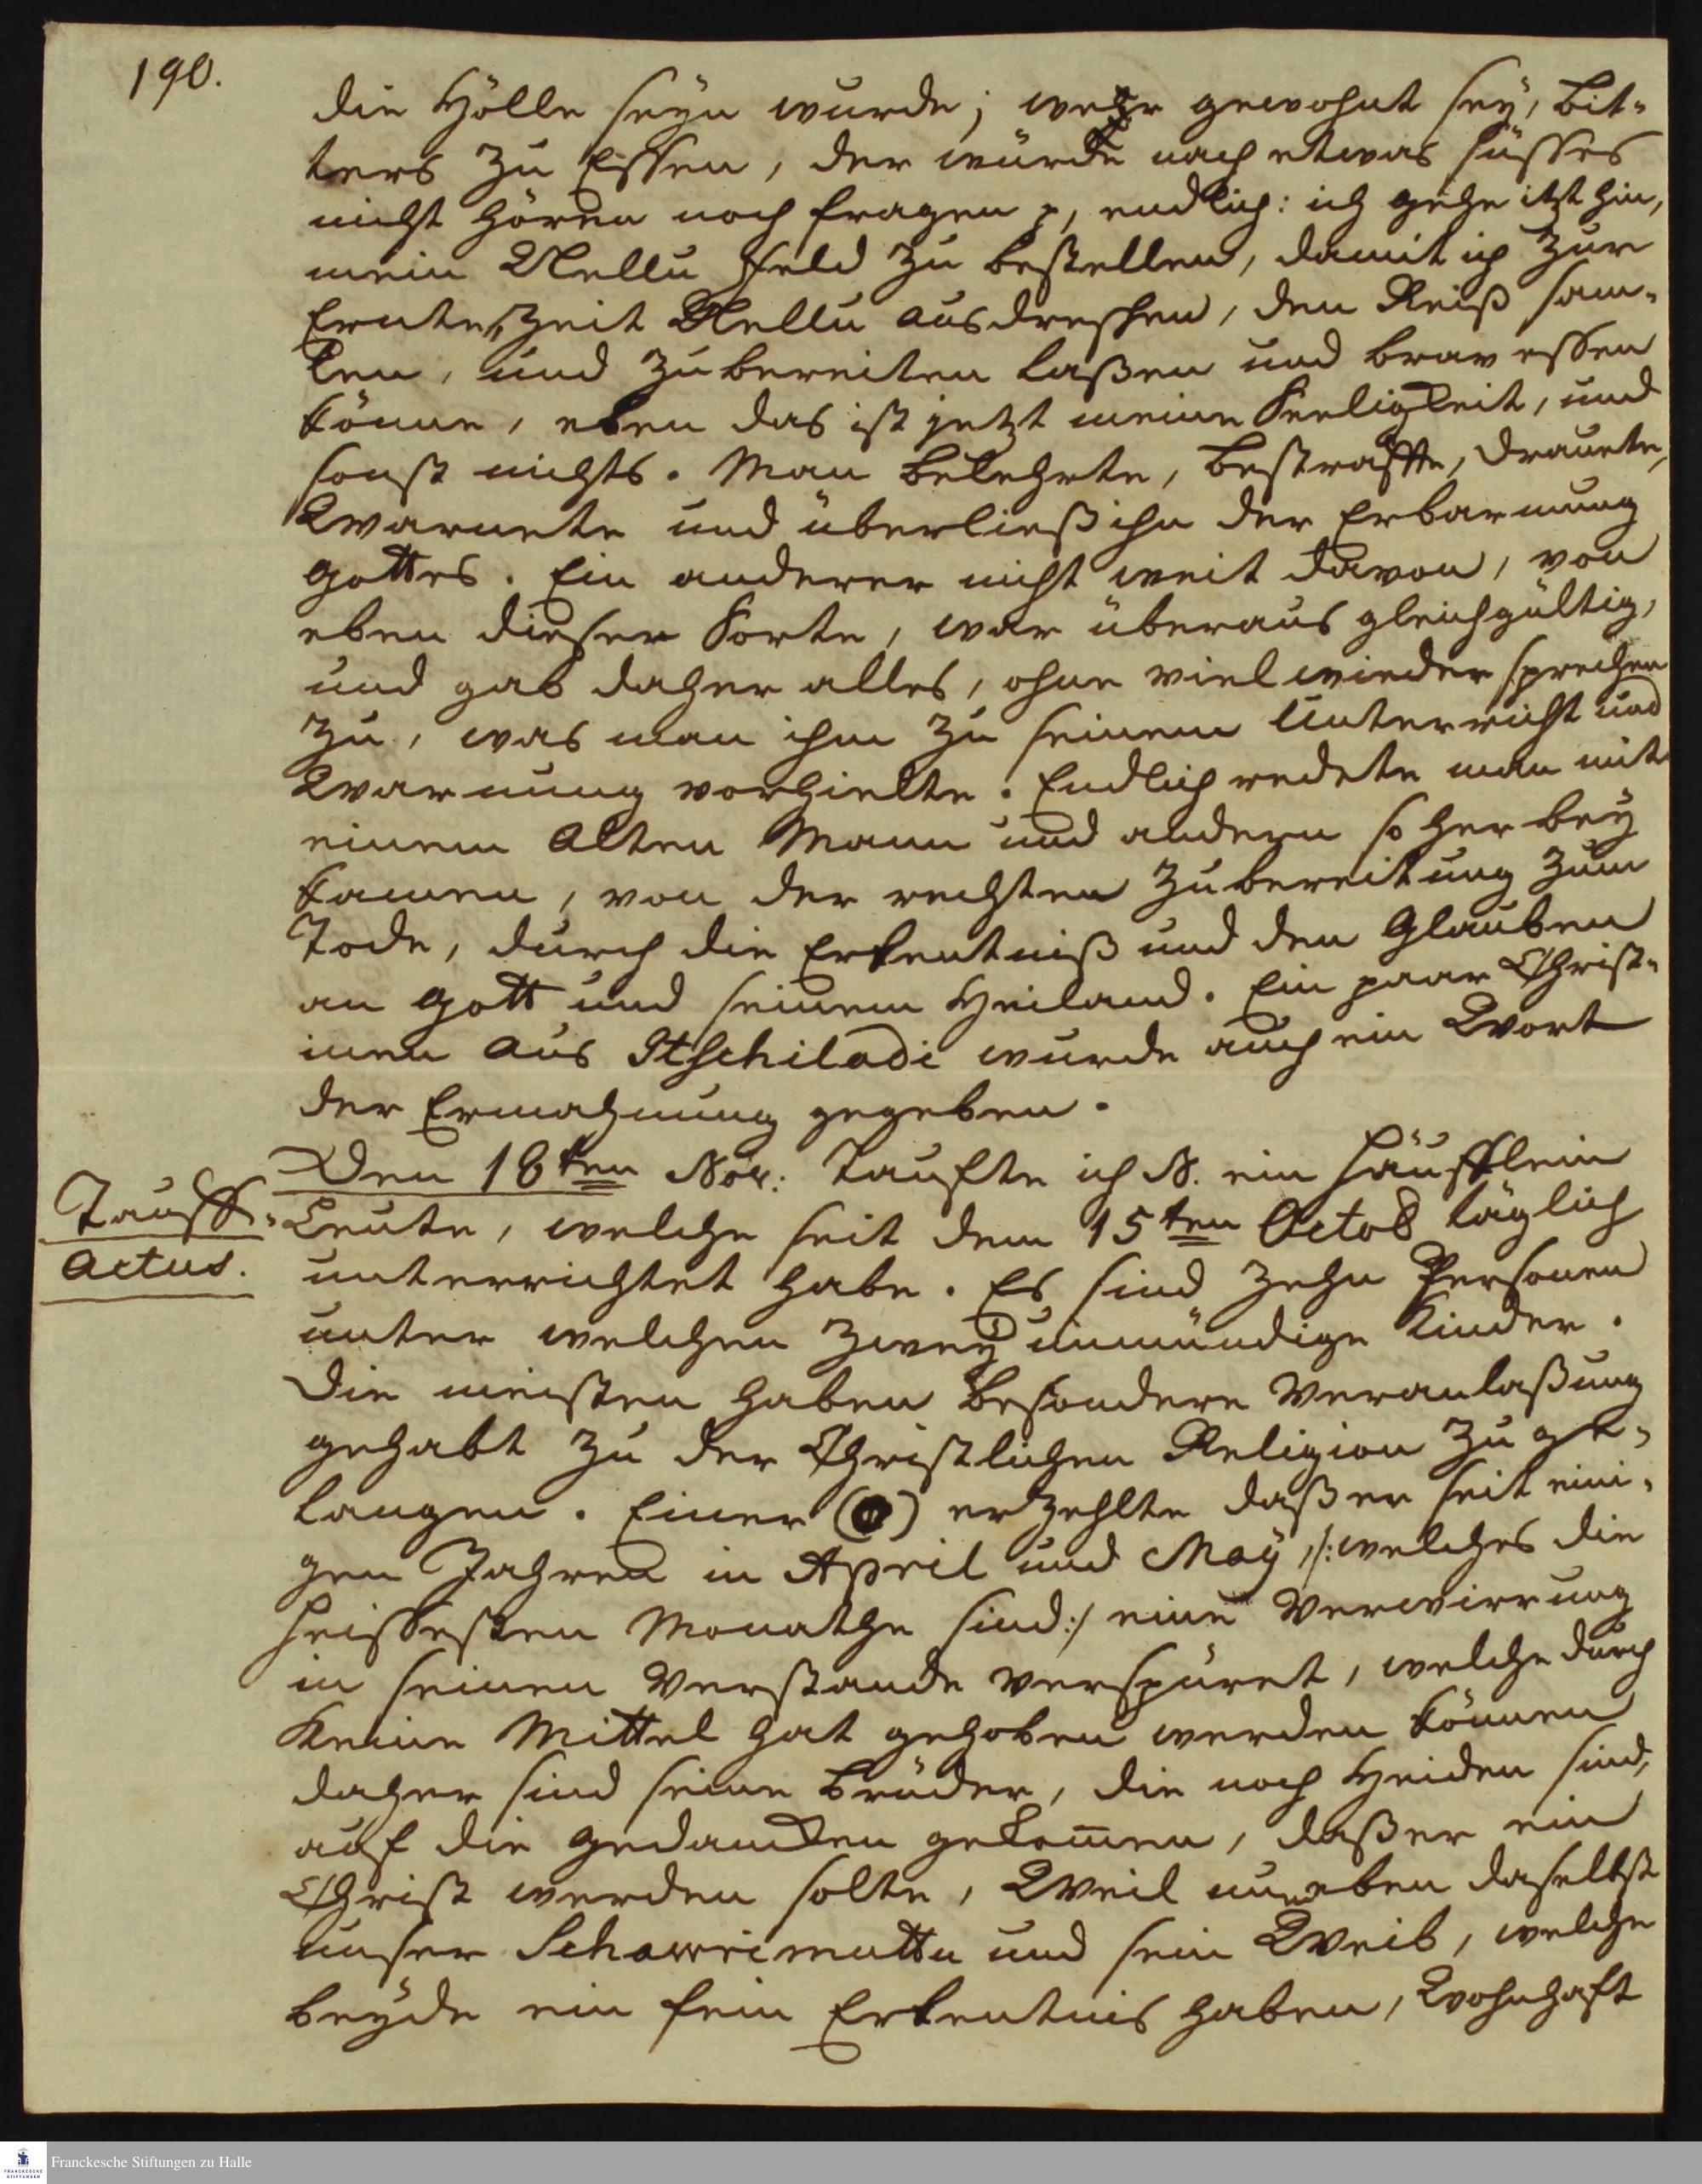 190.
die Hölle seyn wurde; wer gewohnt sey, bit-
ters zu Essen, der würde nach etwas süsses
nicht hören noch fragen p, endlich: ich gehe itzt hin,
mein Nellu Feld zu bestellen, damit ich zur
Ernte Zeit Nellu ausdreschen, den Reiß sam-
len, und zubereiten laßen und brav essen
könne, eben das ist jetzt meine Seeligkeit, und
sonst nichts. Man belehrte, bestraffte, drauete,
Warnete und überließ ihn der Erbarmung
Gottes. Ein anderer nicht weit davon, von
eben dieser Sorte, war überaus gleichgültig,
und gab daher alles, ohne viel wieder sprechen
zu, was man ihm zu seinem Unterricht und
Warnung vorhielte. Endlich redete man mit
einem Alten Mann und andern so herbey
kamen, von der rechten Zubereitung zum
Tode, durch die Erkentniß und den Glauben
an Gott und seinem Heiland. Ein paar Christ-
inen aus Itschiladi wurde auch ein Wort
der Ermahnung gegeben.
Den 18ten Nov: Taufte ich N. ein Häufflein
Tauff-
Actus.
Leute, welche seit dem 15ten Octob täglich
unterrichtet habe. Es sind Zehn Personen
unter welchen Zwey unmündige Kinder.
Die meisten haben besondere Veranlaßung
gehabt zu der Christlichen Religion zu ge-
langen. Einer () erzehlte daß er seit eini-
gen Jahren in April und May, /:welches die
heissesten Monathe sind:/ eine Verwirrung
in seinen Verstande verspüret, welche durch
Keine Mittel hat gehoben werden können
daher sind seine Brüder, die noch Heiden sind,
auf die Gedancken gekom̅en, daß er ein
Christ werden solte, Weil nun eben daselbst
unser Schawrimuttu und sein Weib, welche
beyde ein fein Erkentnis haben, Wohnhaft
Franckesche Stiftungen zu Halle
FRANCKESCHE
STIFTUNGEN